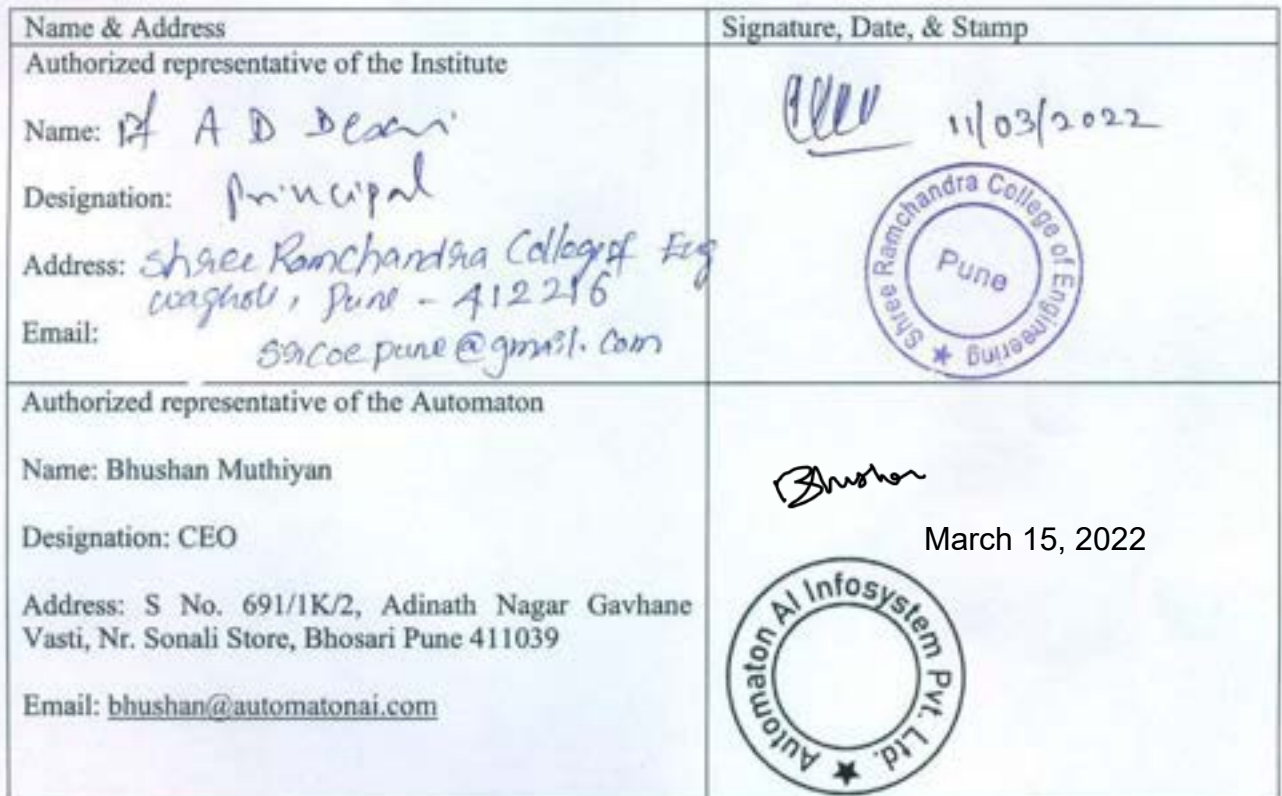 Name & Address
Signature, Date, & Stamp
Authorized representative of the Institute
Name: A D Desai
Designation: Principal
Address: Shree Ramchandra College of Eng
wagholi, Pune - 412216
Email: srcoepune@gmail.com
11/03/2022
Shree Ramchandra College of Engineering
Pune
Authorized representative of the Automaton
Name: Bhushan Muthiyan
Designation: CEO
Address: S No. 691/1K/2, Adinath Nagar Gavhane
Vasti, Nr. Sonali Store, Bhosari Pune 411039
Email: bhushan@automatonai.com
Bhushan
March 15, 2022
Automaton AI Infosystem Pvt. Ltd.